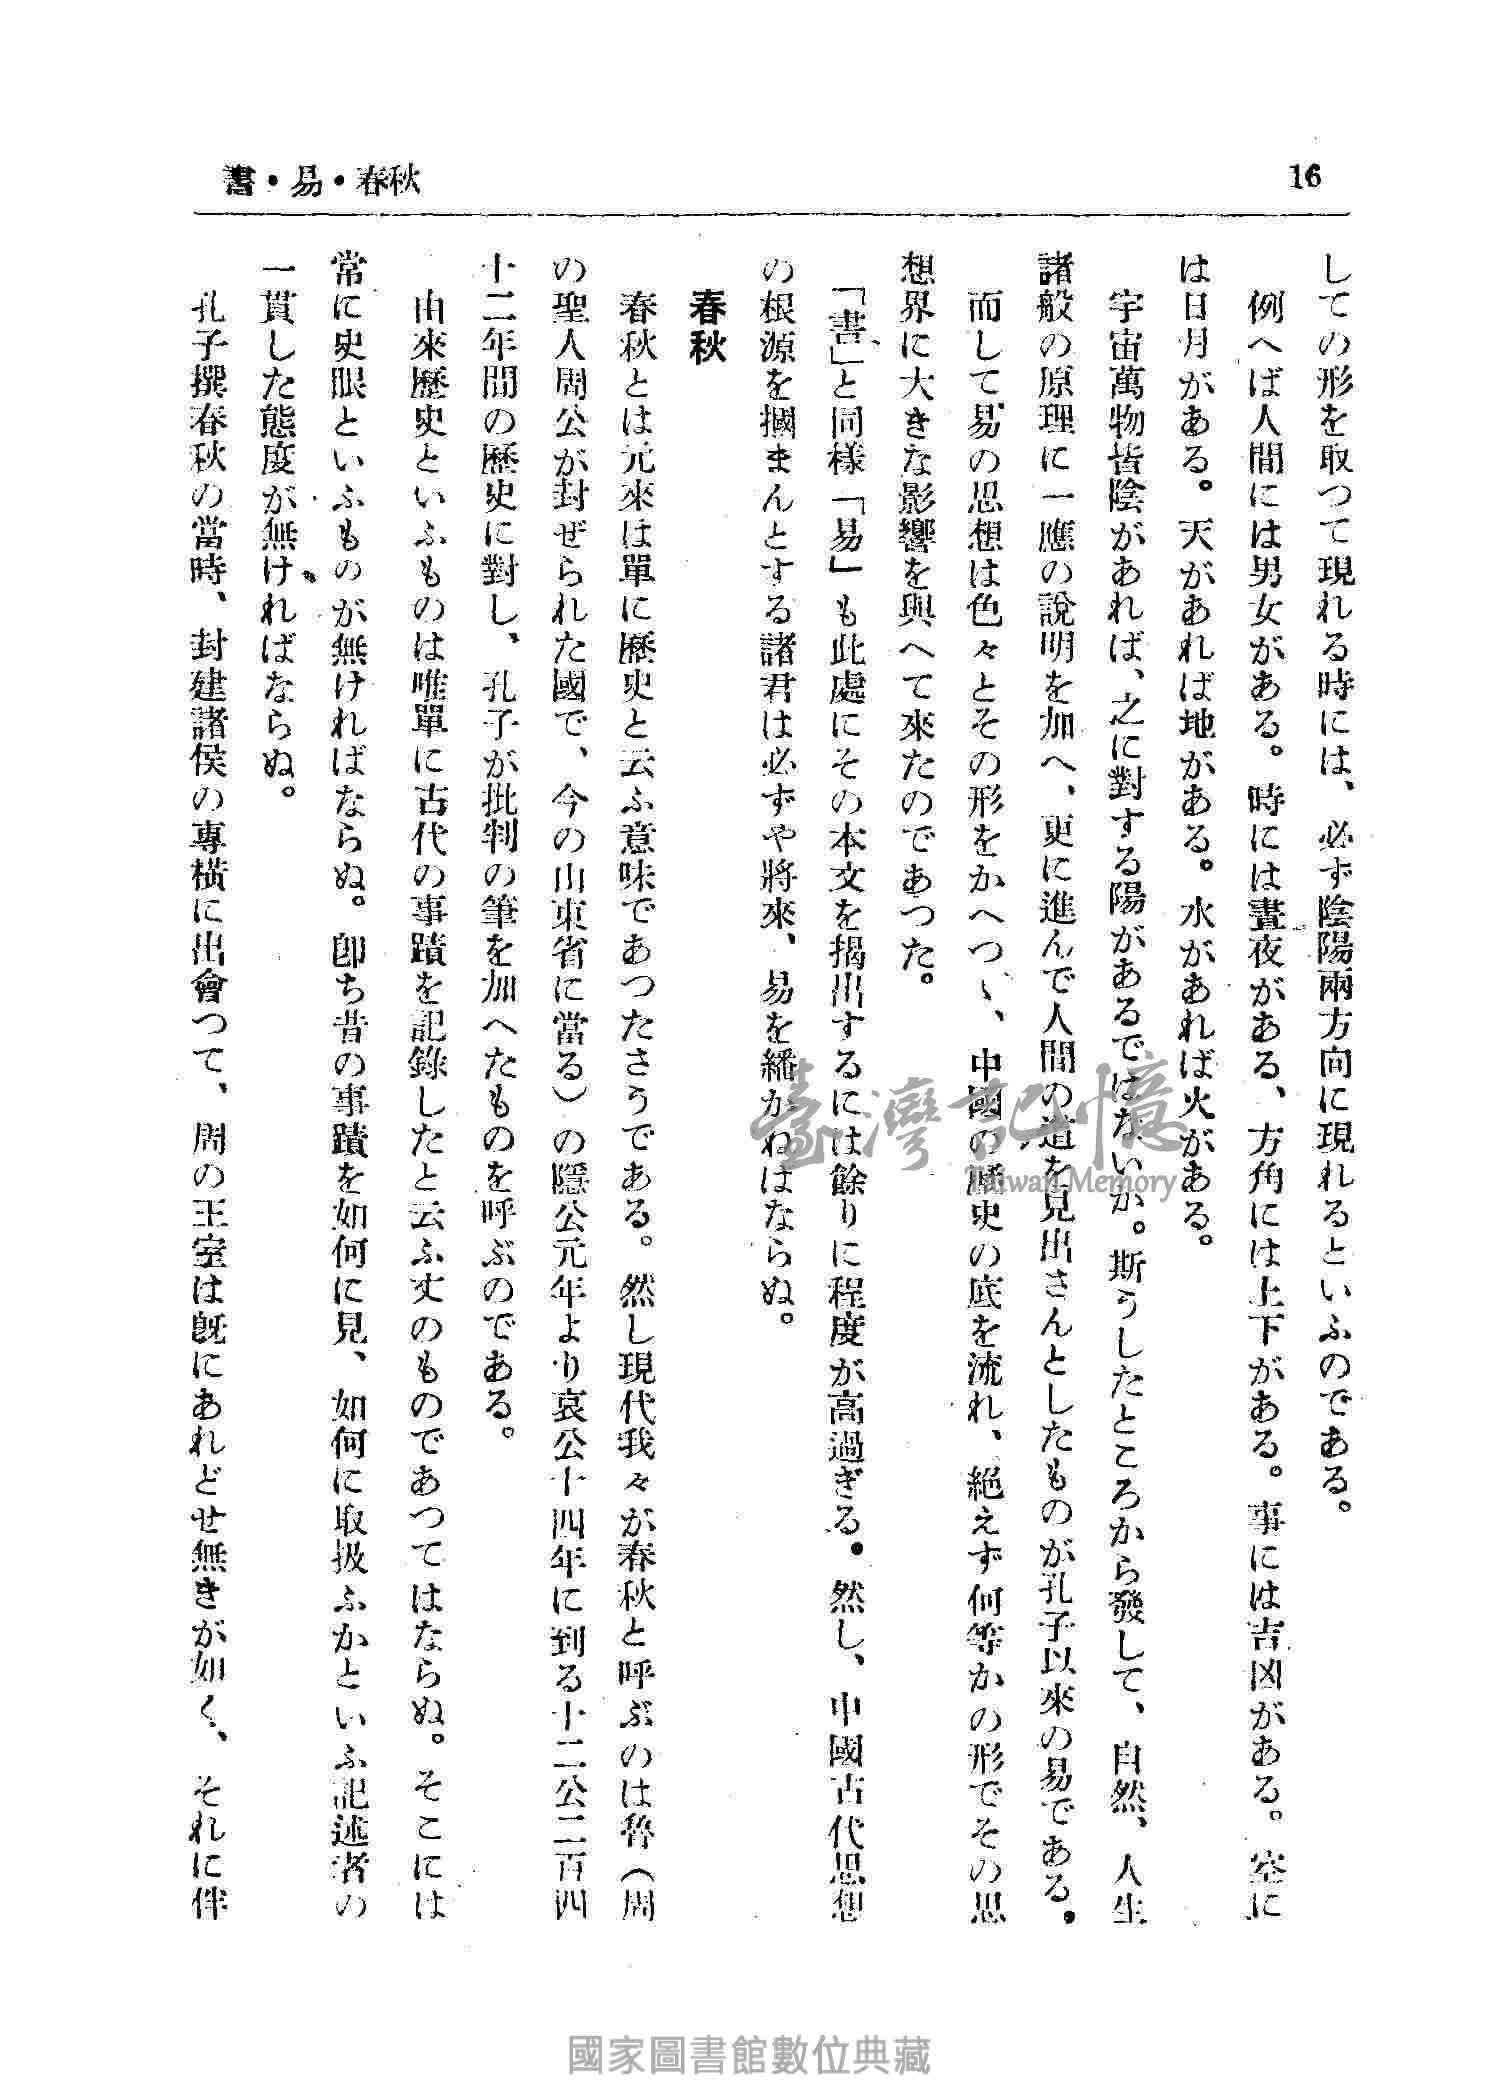 書・易・春秋
16
しての形を取つて現れる時には、必ず陰陽兩方向に現れるといふのである。
例へば人間には男女がある。時には晝夜がある、方角には上下がある。事には吉凶がある。空に
は日月がある。天があれば地がある。水があれば火がある。
宇宙萬物皆陰があれば、之に對する陽があるではないか。斯うしたところから發して、自然、人生
諸般の原理に一應の說明を加へ、更に進んで人間の道を見出さんとしたものが孔子以來の易である。
而して易の思想は色々とその形をかへつゝ、中國の歷史の底を流れ、絕えず何等かの形でその思
想界に大きな影響を與へて來たのであつた。
「書」と同樣「易」も此處にその本文を揭出するには餘りに程度が高過ぎる。然し、中國古代思想
の根源を摑まんとする諸君は必ずや將來、易を繙かねばならぬ。
春秋
春秋とは元來は單に歷史と云ふ意味であつたさうである。然し現代我々が春秋と呼ぶのは魯（周
の聖人周公が封ぜられた國で、今の山東省に當る）の隱公元年より哀公十四年に到る十二公二百四
十二年間の歷史に對し、孔子が批判の筆を加へたものを呼ぶのである。
由來歷史といふものは唯單に古代の事蹟を記錄したと云ふ丈のものであつてはならぬ。そこには
常に史眼といふものが無ければならぬ。卽ち昔の事蹟を如何に見、如何に取扱ふかといふ記述者の
一貫した態度が無ければならぬ。
孔子撰春秋の當時、封建諸侯の專橫に出會つて、周の王室は旣にあれどせ無きが如く、それに伴
臺灣記憶
Taiwan Memory
國家圖書館數位典藏